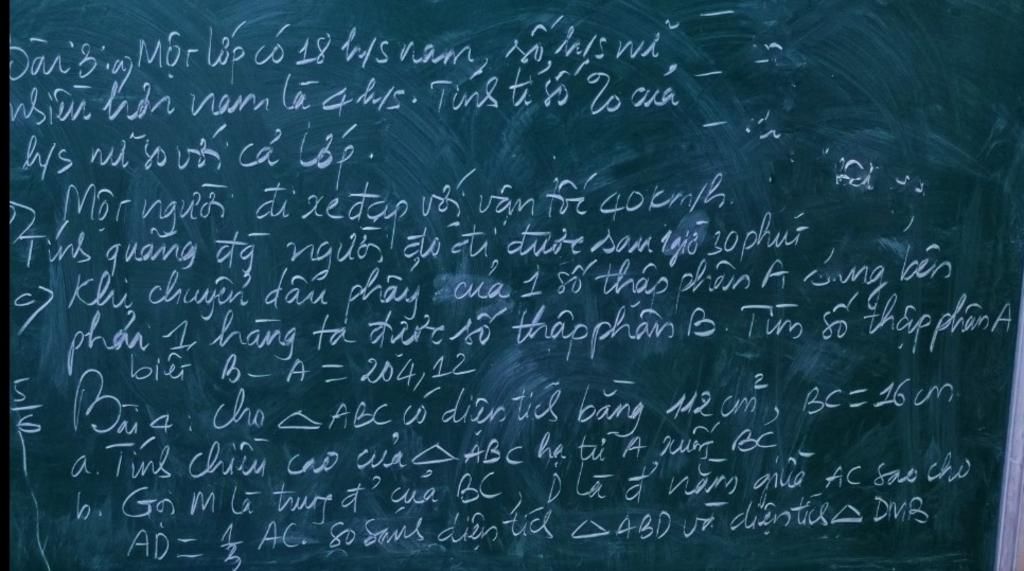 Bài 3: a, Một lớp có 18 h/s nam, số h/s nữ
nhiều hơn nam là 4 h/s. Tính tỉ số % của
h/s nữ so với cả lớp.
Một người đi xe đạp với vận tốc 40 km/h.
Tính quãng đg người đó đi được sau 1 giờ 30 phút
c) Khi chuyển dấu phẩy của 1 số thập phân A sang bên
phải 1 hàng ta được số thập phân B. Tìm số thập phân A
biết B - A = 204,12
5/6
Bài 4: Cho △ABC có diện tích bằng 112 cm², BC = 16 cm
a. Tính chiều cao của △ABC hạ từ A xuống BC
b. Gọi M là trung đ' của BC, D là đ' nằm giữa AC sao cho
AD = 1/3 AC. So sánh diện tích △ABD và diện tích △DMB